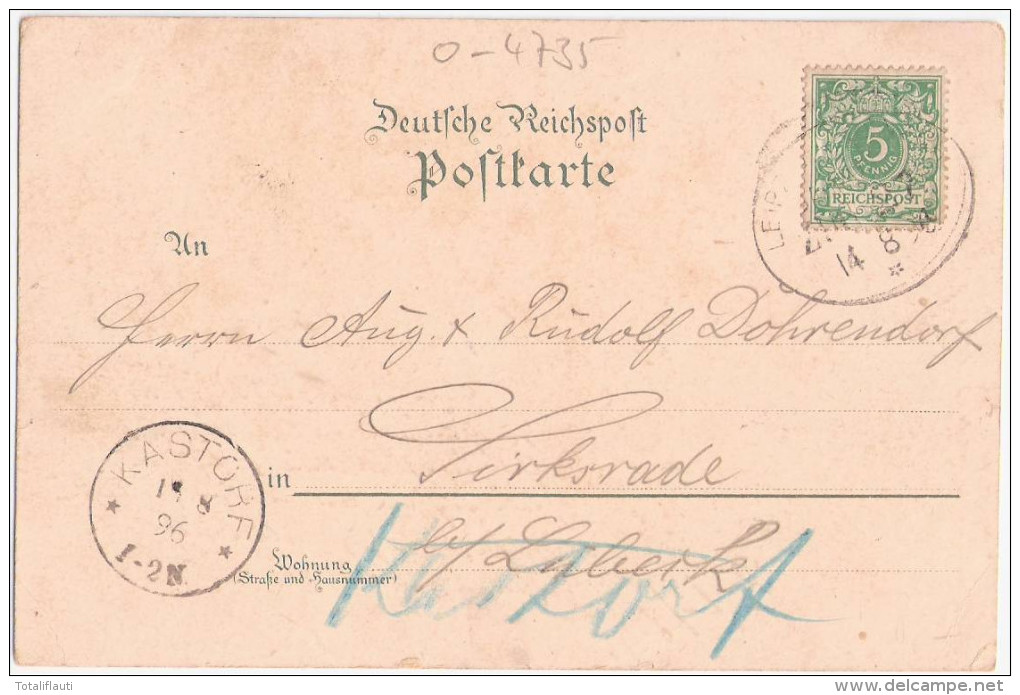 0-4735
Deutsche Reichspost
Postkarte
5
PFENNIG
REICHSPOST
14 8
*
An
Herrn Aug. & Rudolf Dohrendorf
in Sirksrade
b/ Lübeck
Kastorf
Wohnung
(Straße und Hausnummer)
* KASTORF *
8
96
1-2N.
Totaliflauti
delcampe.net